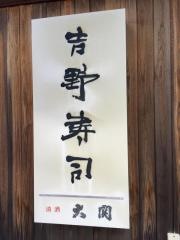 吉野寿司
清酒 大関